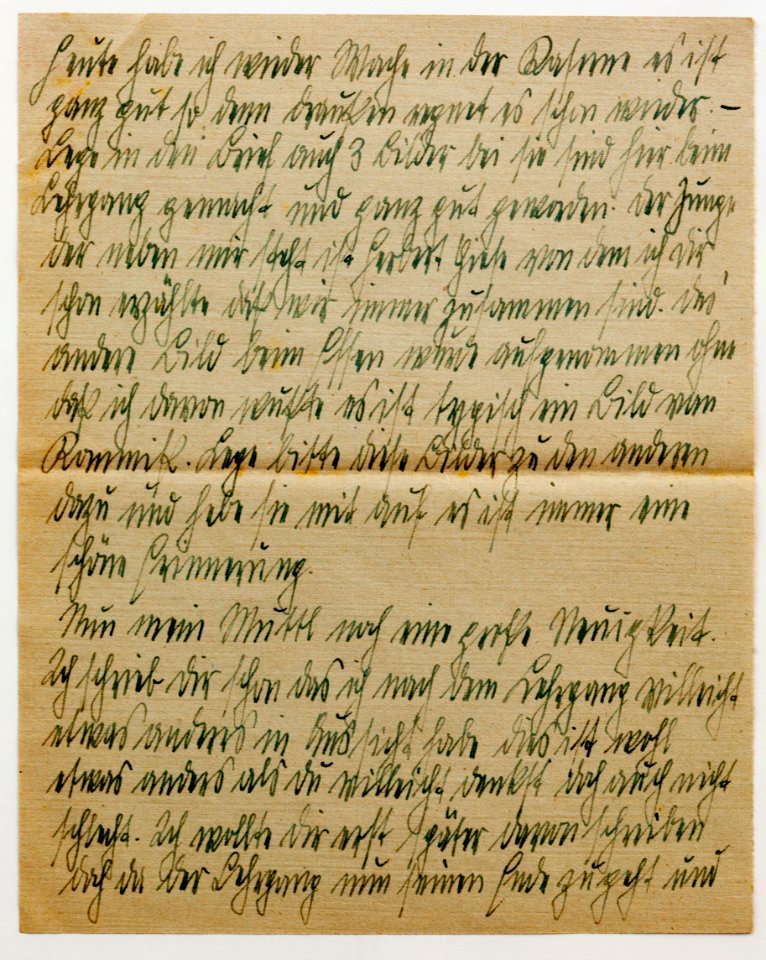 Heute habe ich wieder Wache in der Kaserne es ist
ganz gut so denn draußen regnet es schon wieder. –
Lege in den Brief auch 3 Bilder bei sie sind hier beim
Lehrgang gemacht und ganz gut geworden. Der Junge
der neben mir steht ist Herbert Giese von dem ich dir
schon erzählte daß wir immer zusammen sind. Das
andere Bild beim Essen wurde aufgenommen ohne
daß ich davon wußte es ist typisch ein Bild vom
Kommiß. Lege bitte diese Bilder zu den anderen
dazu und hebe sie mit auf es ist immer eine
schöne Erinnerung.
Nun mein Muttl noch eine große Neuigkeit.
Ich schrieb dir schon das ich nach dem Lehrgang villeicht
etwas anders in Aussicht habe dies ist wohl
etwas anders als du villeicht denkst doch auch nicht
schlecht. Ich wollte dir erst später davon schreiben
doch da der Lehrgang nun seinen Ende zugeht und